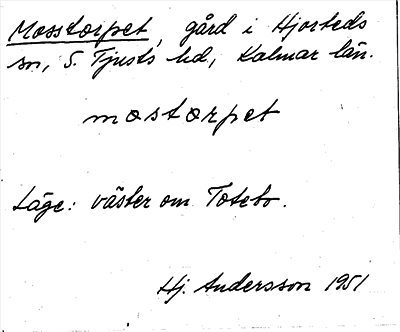 Mosstorpet, gård i Hjorteds
sn, S. Tjusts hd, Kalmar län.
mostorpet
Läge: väster om Totebo.
Hj. Andersson 1951